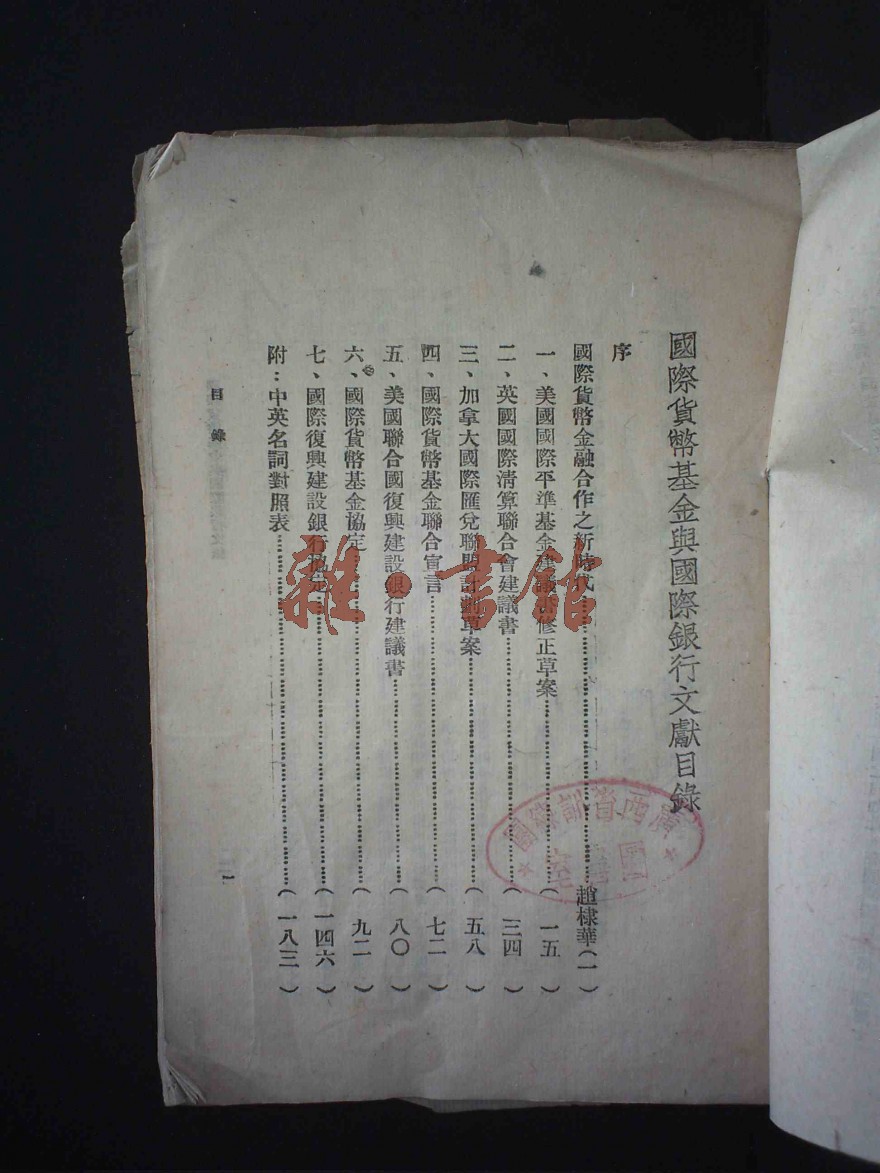 國際貨幣基金與國際銀行文獻目錄
序
國際貨幣金融合作之新時代……趙棣華(一)
一、美國國際平準基金建議書修正草案……(一五)
二、英國國際清算聯合會建議書……(三四)
三、加拿大國際匯兌聯盟計劃草案……(五八)
四、國際貨幣基金聯合宣言……(七二)
五、美國聯合國復興建設銀行建議書……(八〇)
六、國際貨幣基金協定……(九二)
七、國際復興建設銀行協定……(一四六)
附：中英名詞對照表……(一八三)
目錄
一
雜·書館
廣西省訓練團
圖書室